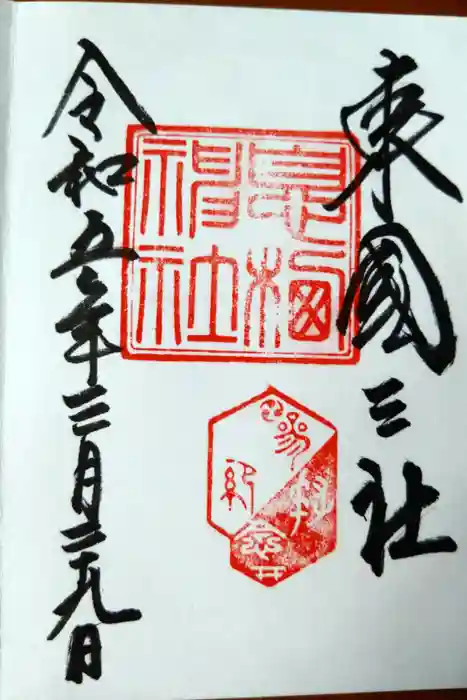 東國三社
息栖
神社
参拝
記念
令和五年三月二十九日